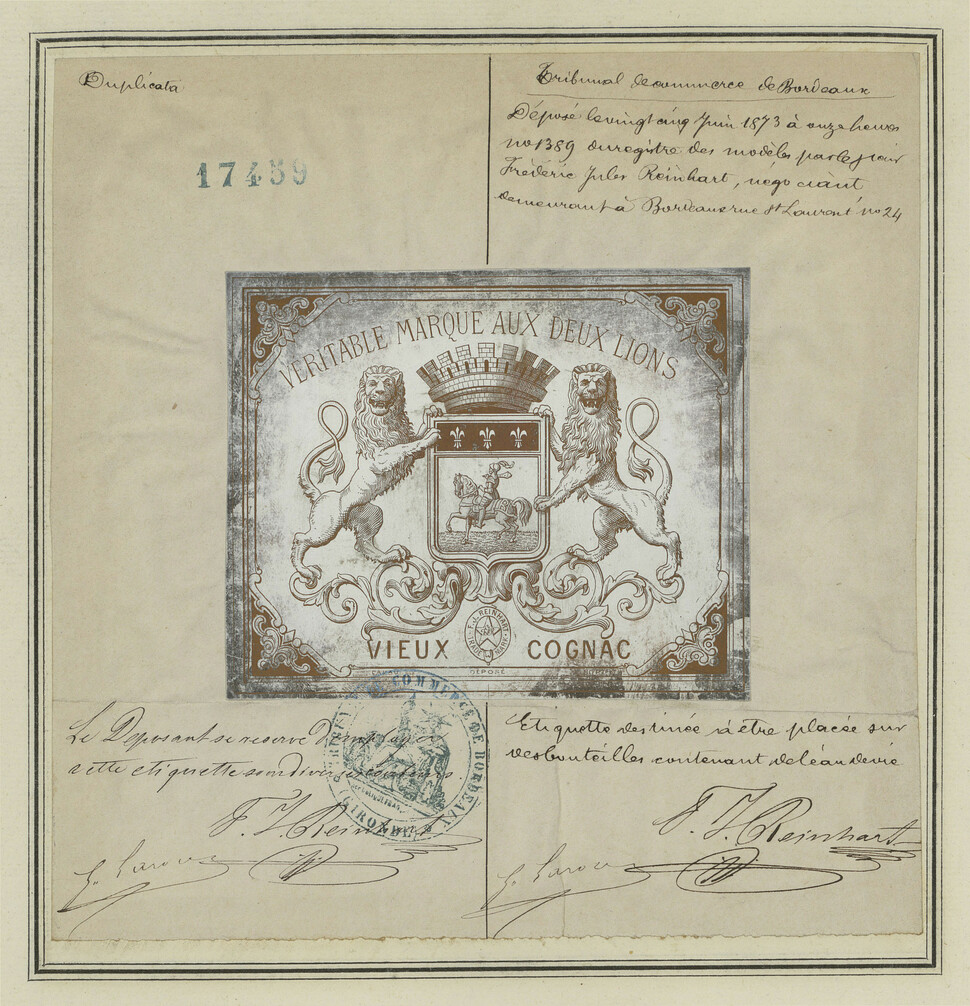 Duplicata
17459
Tribunal de commerce de Bordeaux
Déposé le vingt cinq Juin 1873 à onze heures
no 1389 du registre des modèles par le sieur
Frédéric Jules Reinhart, négociant
demeurant à Bordeaux rue St Laurent no 24
VERITABLE MARQUE AUX DEUX LIONS
F. J. REINHART
TRADE MARK
VIEUX COGNAC
DÉPOSÉ
COMMERCE DE BORDEAUX
GIRONDE
Le Deposant se reserve d'employer
cette etiquette sous diverses couleurs.
F. J. Reinhart
Etiquette destinée à être placée sur
des bouteilles contenant de l'eau de vie
F. J. Reinhart